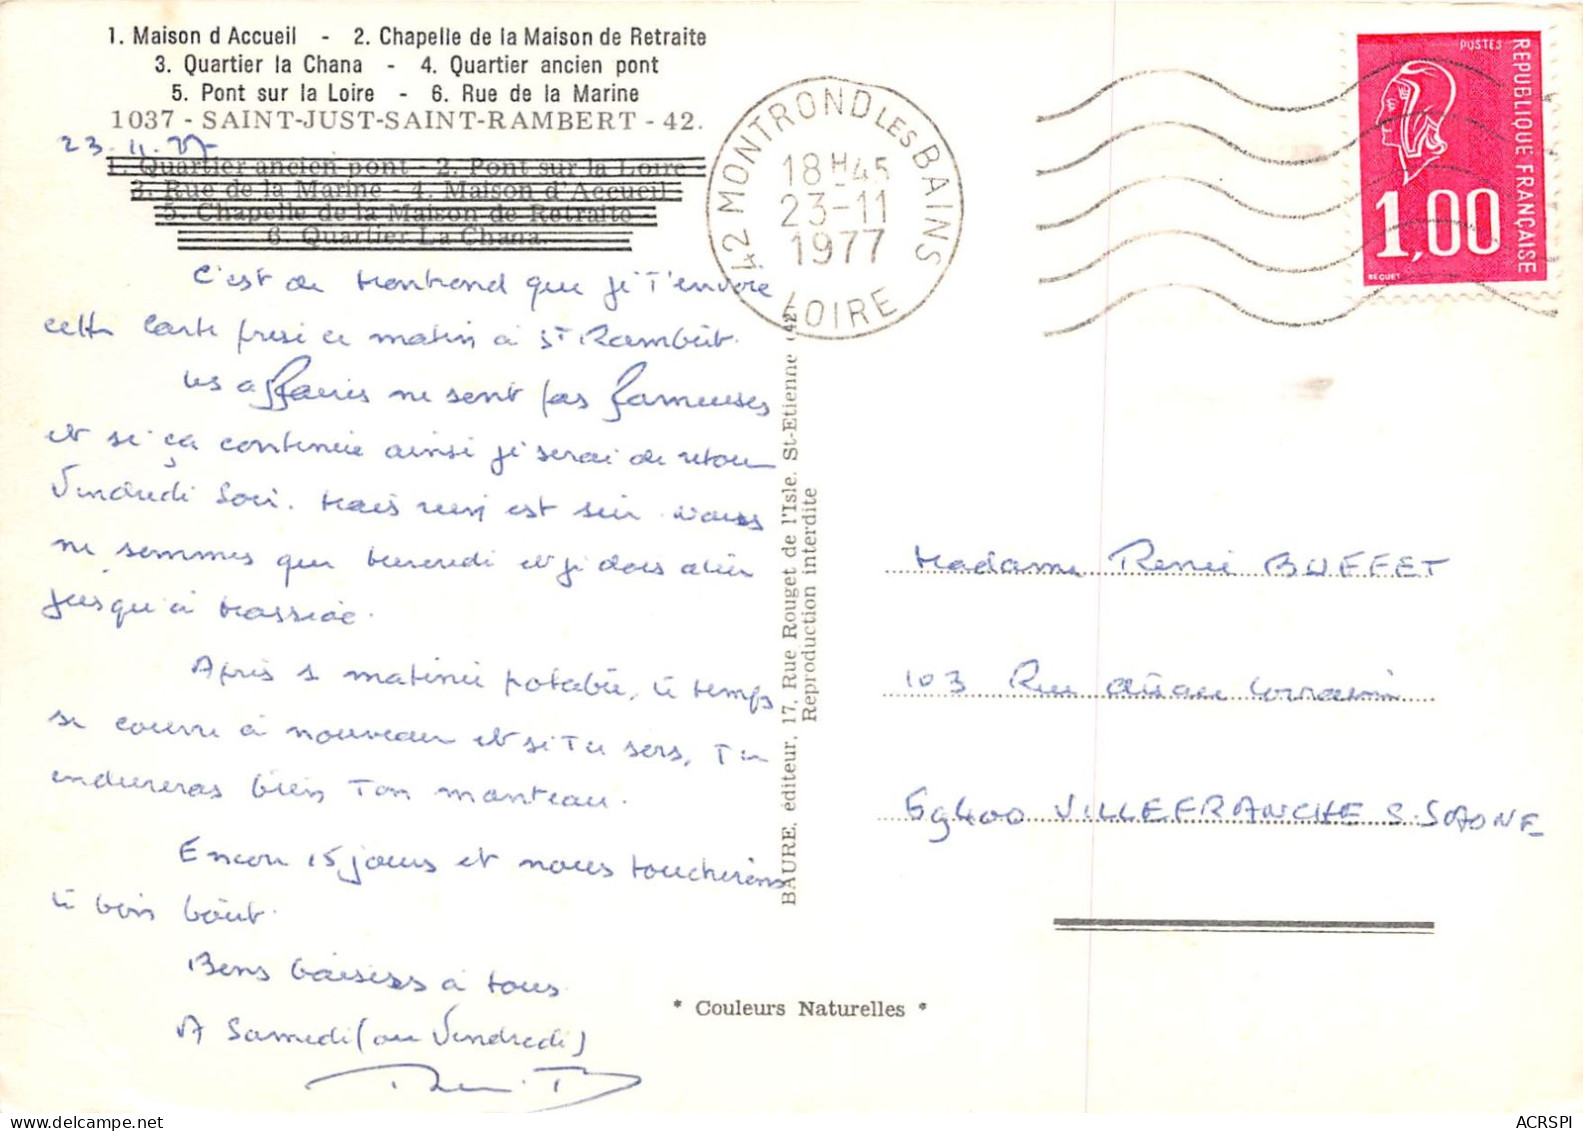 1. Maison d Accueil - 2. Chapelle de la Maison de Retraite
3. Quartier la Chana - 4. Quartier ancien pont
5. Pont sur la Loire - 6. Rue de la Marine
1037 - SAINT-JUST-SAINT-RAMBERT - 42.
23.11.77
1. Quartier ancien pont - 2. Pont sur la Loire
3. Rue de la Marine - 4. Maison d'Accueil
5. Chapelle de la Maison de Retraite
6. Quartier La Chana.
C'est de Montrond que je t'envoie
cette carte prise ce matin à St Rambert.
Les affaires ne sont pas fameuses
et si ça continue ainsi je serai de retour
Vendredi soir. Mais rien est sûr nous
ne sommes que mercredi et je dois aller
jusqu'à
Après 1 matinée potable, le temps
se couvre à nouveau et si tu sors, tu
endureras bien ton manteau.
Encore 15 jours et nous toucherons
le bon bout.
Bons baisers à tous
A Samedi (ou Vendredi)
42 MONTROND LES BAINS
18 H 45
23-11
1977
LOIRE
POSTES
REPUBLIQUE FRANÇAISE
1,00
BEQUET
BAURE, éditeur, 17, Rue Rouget de l'Isle. St-Etienne (42)
Reproduction interdite
Madame Renée BUFFET
103 Rue
69400 VILLEFRANCHE S. SAONE
* Couleurs Naturelles *
ACRSPI